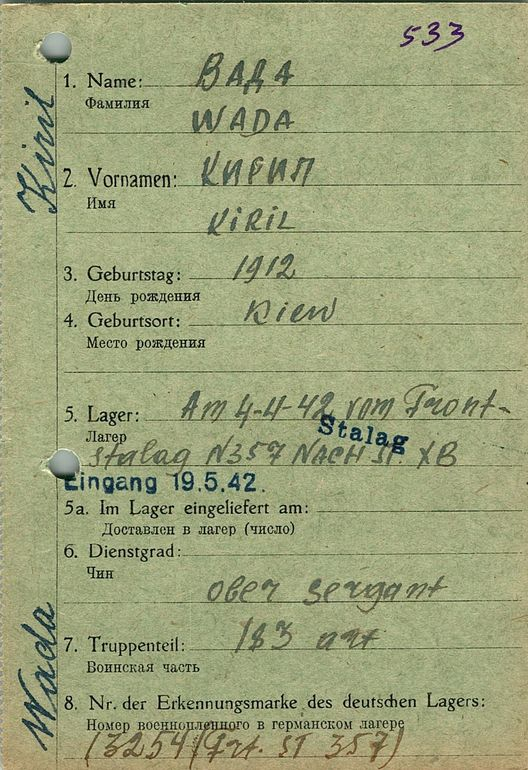 533
1. Name: ВАДА
Фамилия
WADA
2. Vornamen: Кирил
Имя
KiRiL
3. Geburtstag: 1912
День рождения
4. Geburtsort: Kiew
Место рождения
5. Lager: Am 4-4-42 vom Front-
Лагер
Stalag
stalag N357 NACH ST. XB
Eingang 19.5.42.
5a. Im Lager eingeliefert am:
Доставлен в лагер (число)
6. Dienstgrad:
Чин
ober sergant
7. Truppenteil: 183 art
Воинская часть
8. Nr. der Erkennungsmarke des deutschen Lagers:
Номер военнопленного в германском лагере
13254 (Frt. ST 357)
Wada Kiril